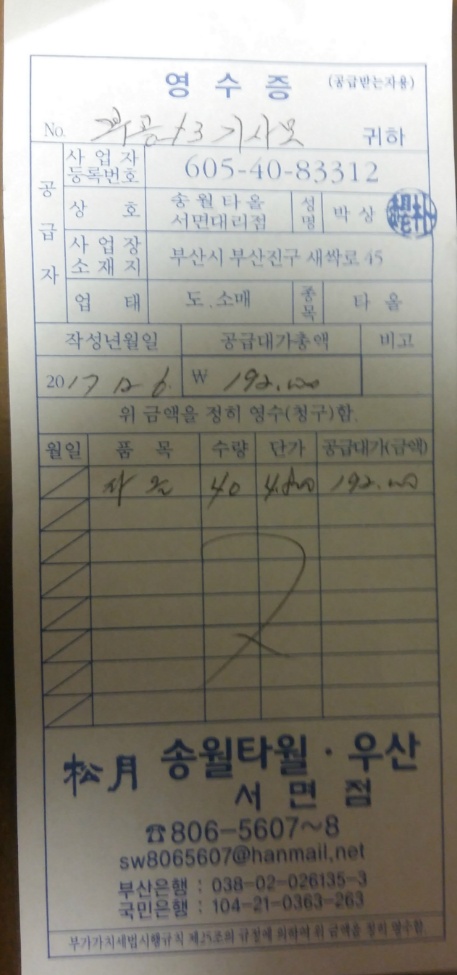 영 수 증 (공급받는자용)
No. 귀하
공급자
사업자등록번호 605-40-83312
상 호 송월타올 서면대리점 성명 박상
사업장소재지 부산시 부산진구 새싹로 45
업 태 도.소매 종목 타올
작성년월일 공급대가총액 비고
2017 12 6. ₩ 192.000
위 금액을 정히 영수(청구)함.
월일 품 목 수량 단가 공급대가(금액)
40 4.800 192.000
松月 송월타월·우산
서 면 점
☎806-5607~8
sw8065607@hanmail,net
부산은행 : 038-02-026135-3
국민은행 : 104-21-0363-263
부가가치세법시행규칙 제25조의 규정에 의하여 위 금액을 정히 영수함